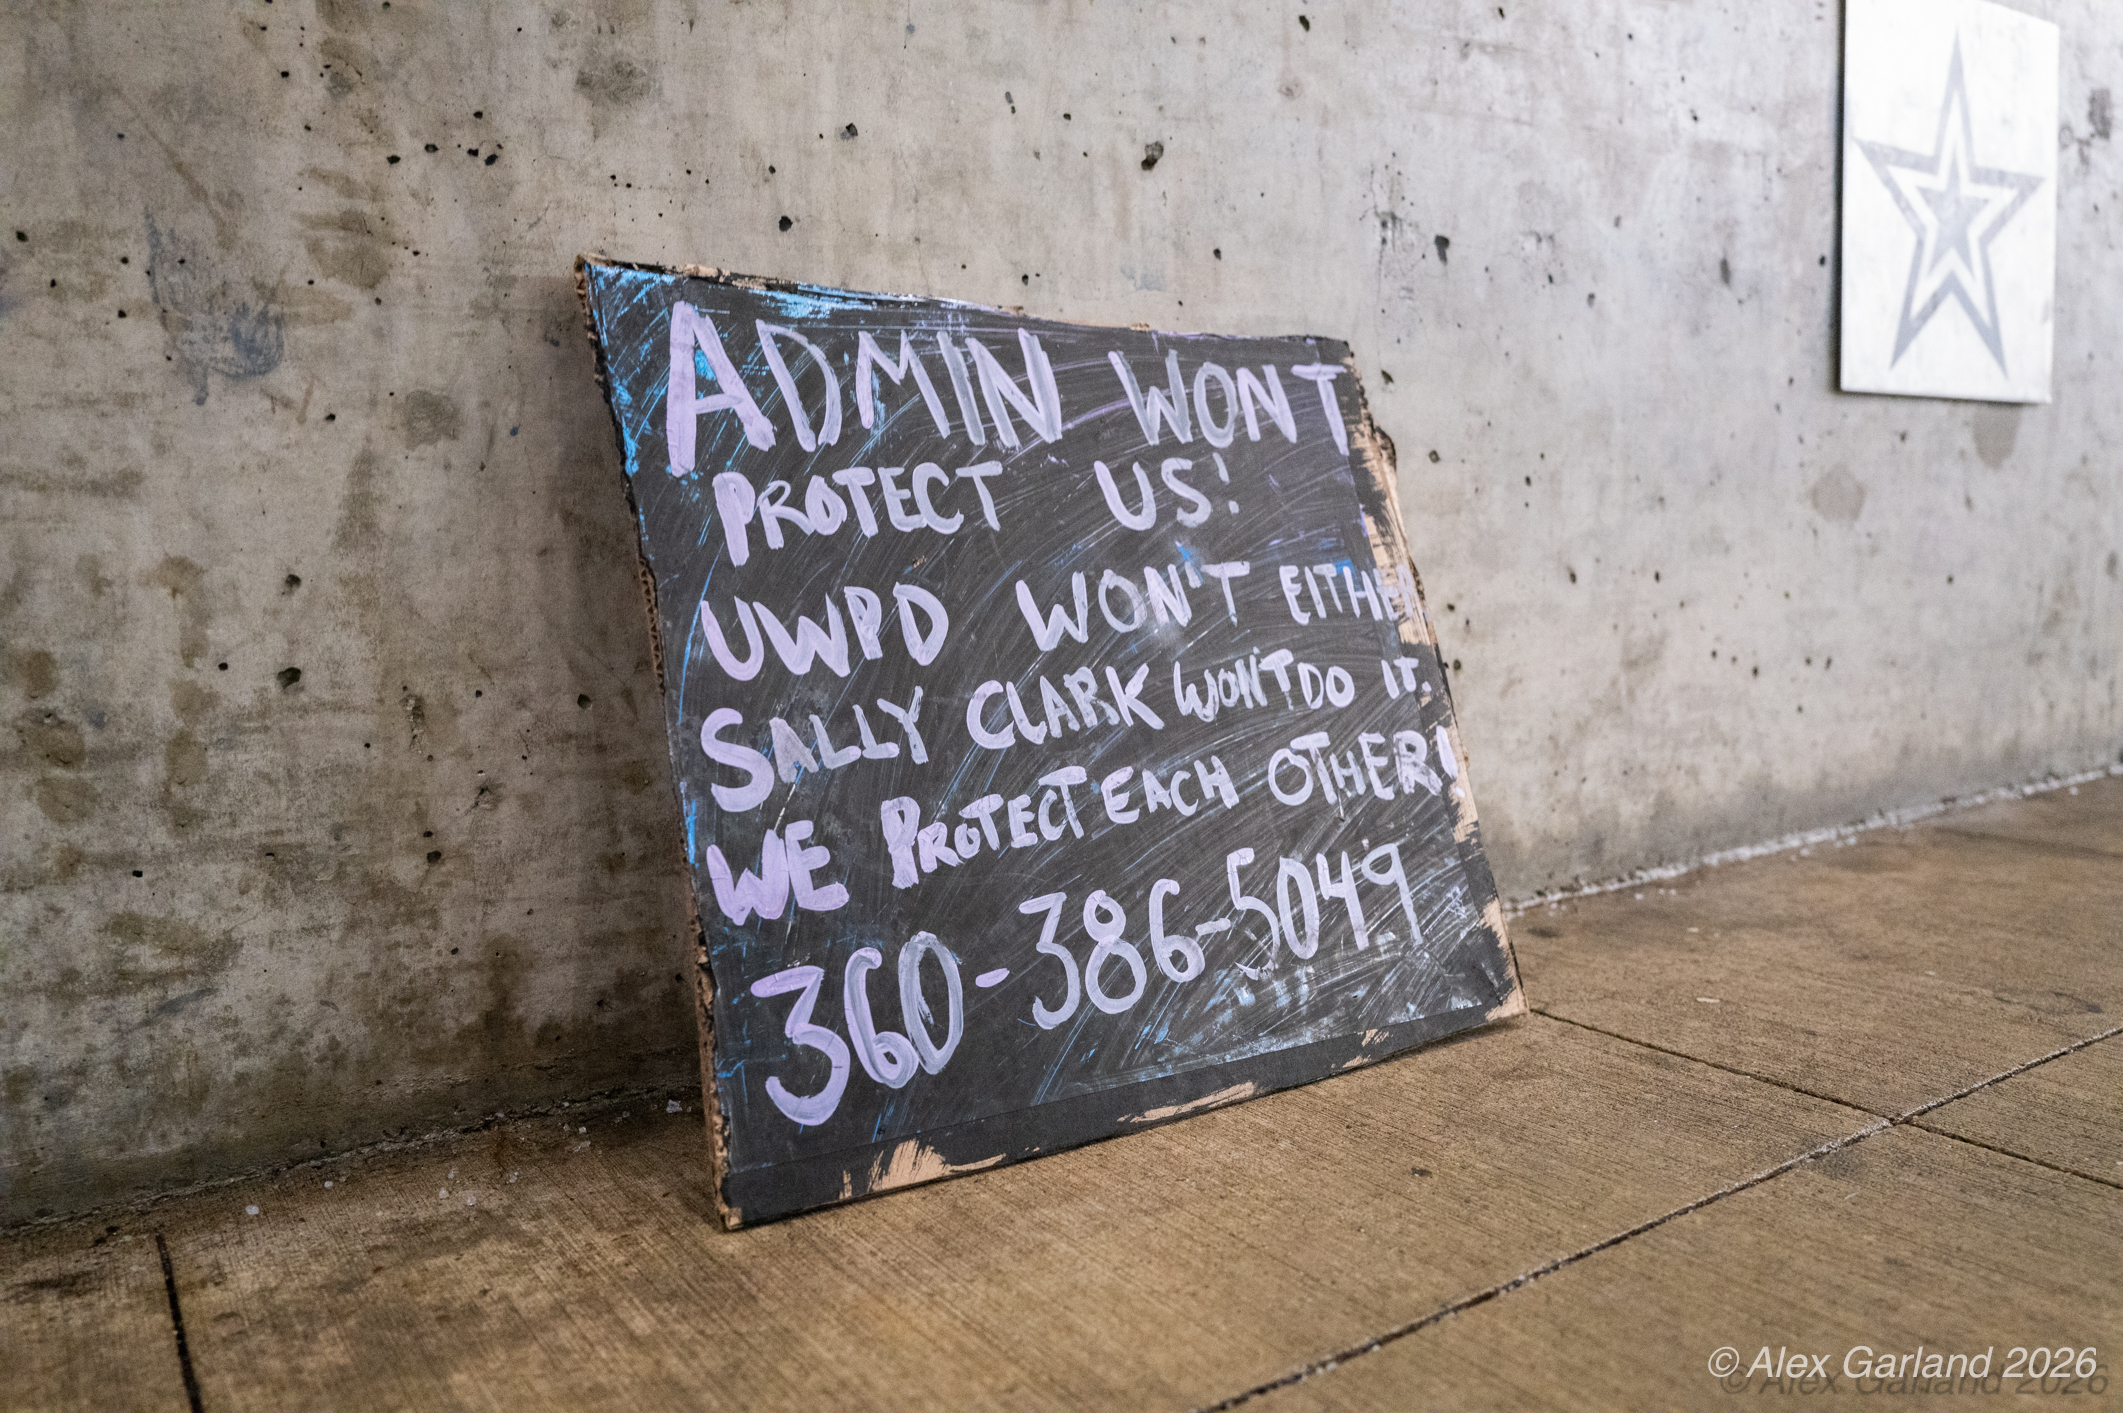 ADMIN WONT
PROTECT US!
UWPD WON'T EITHER
SALLY CLARK WON'T DO IT.
WE PROTECT EACH OTHER!
360-386-5049
©Alex Garland 2026